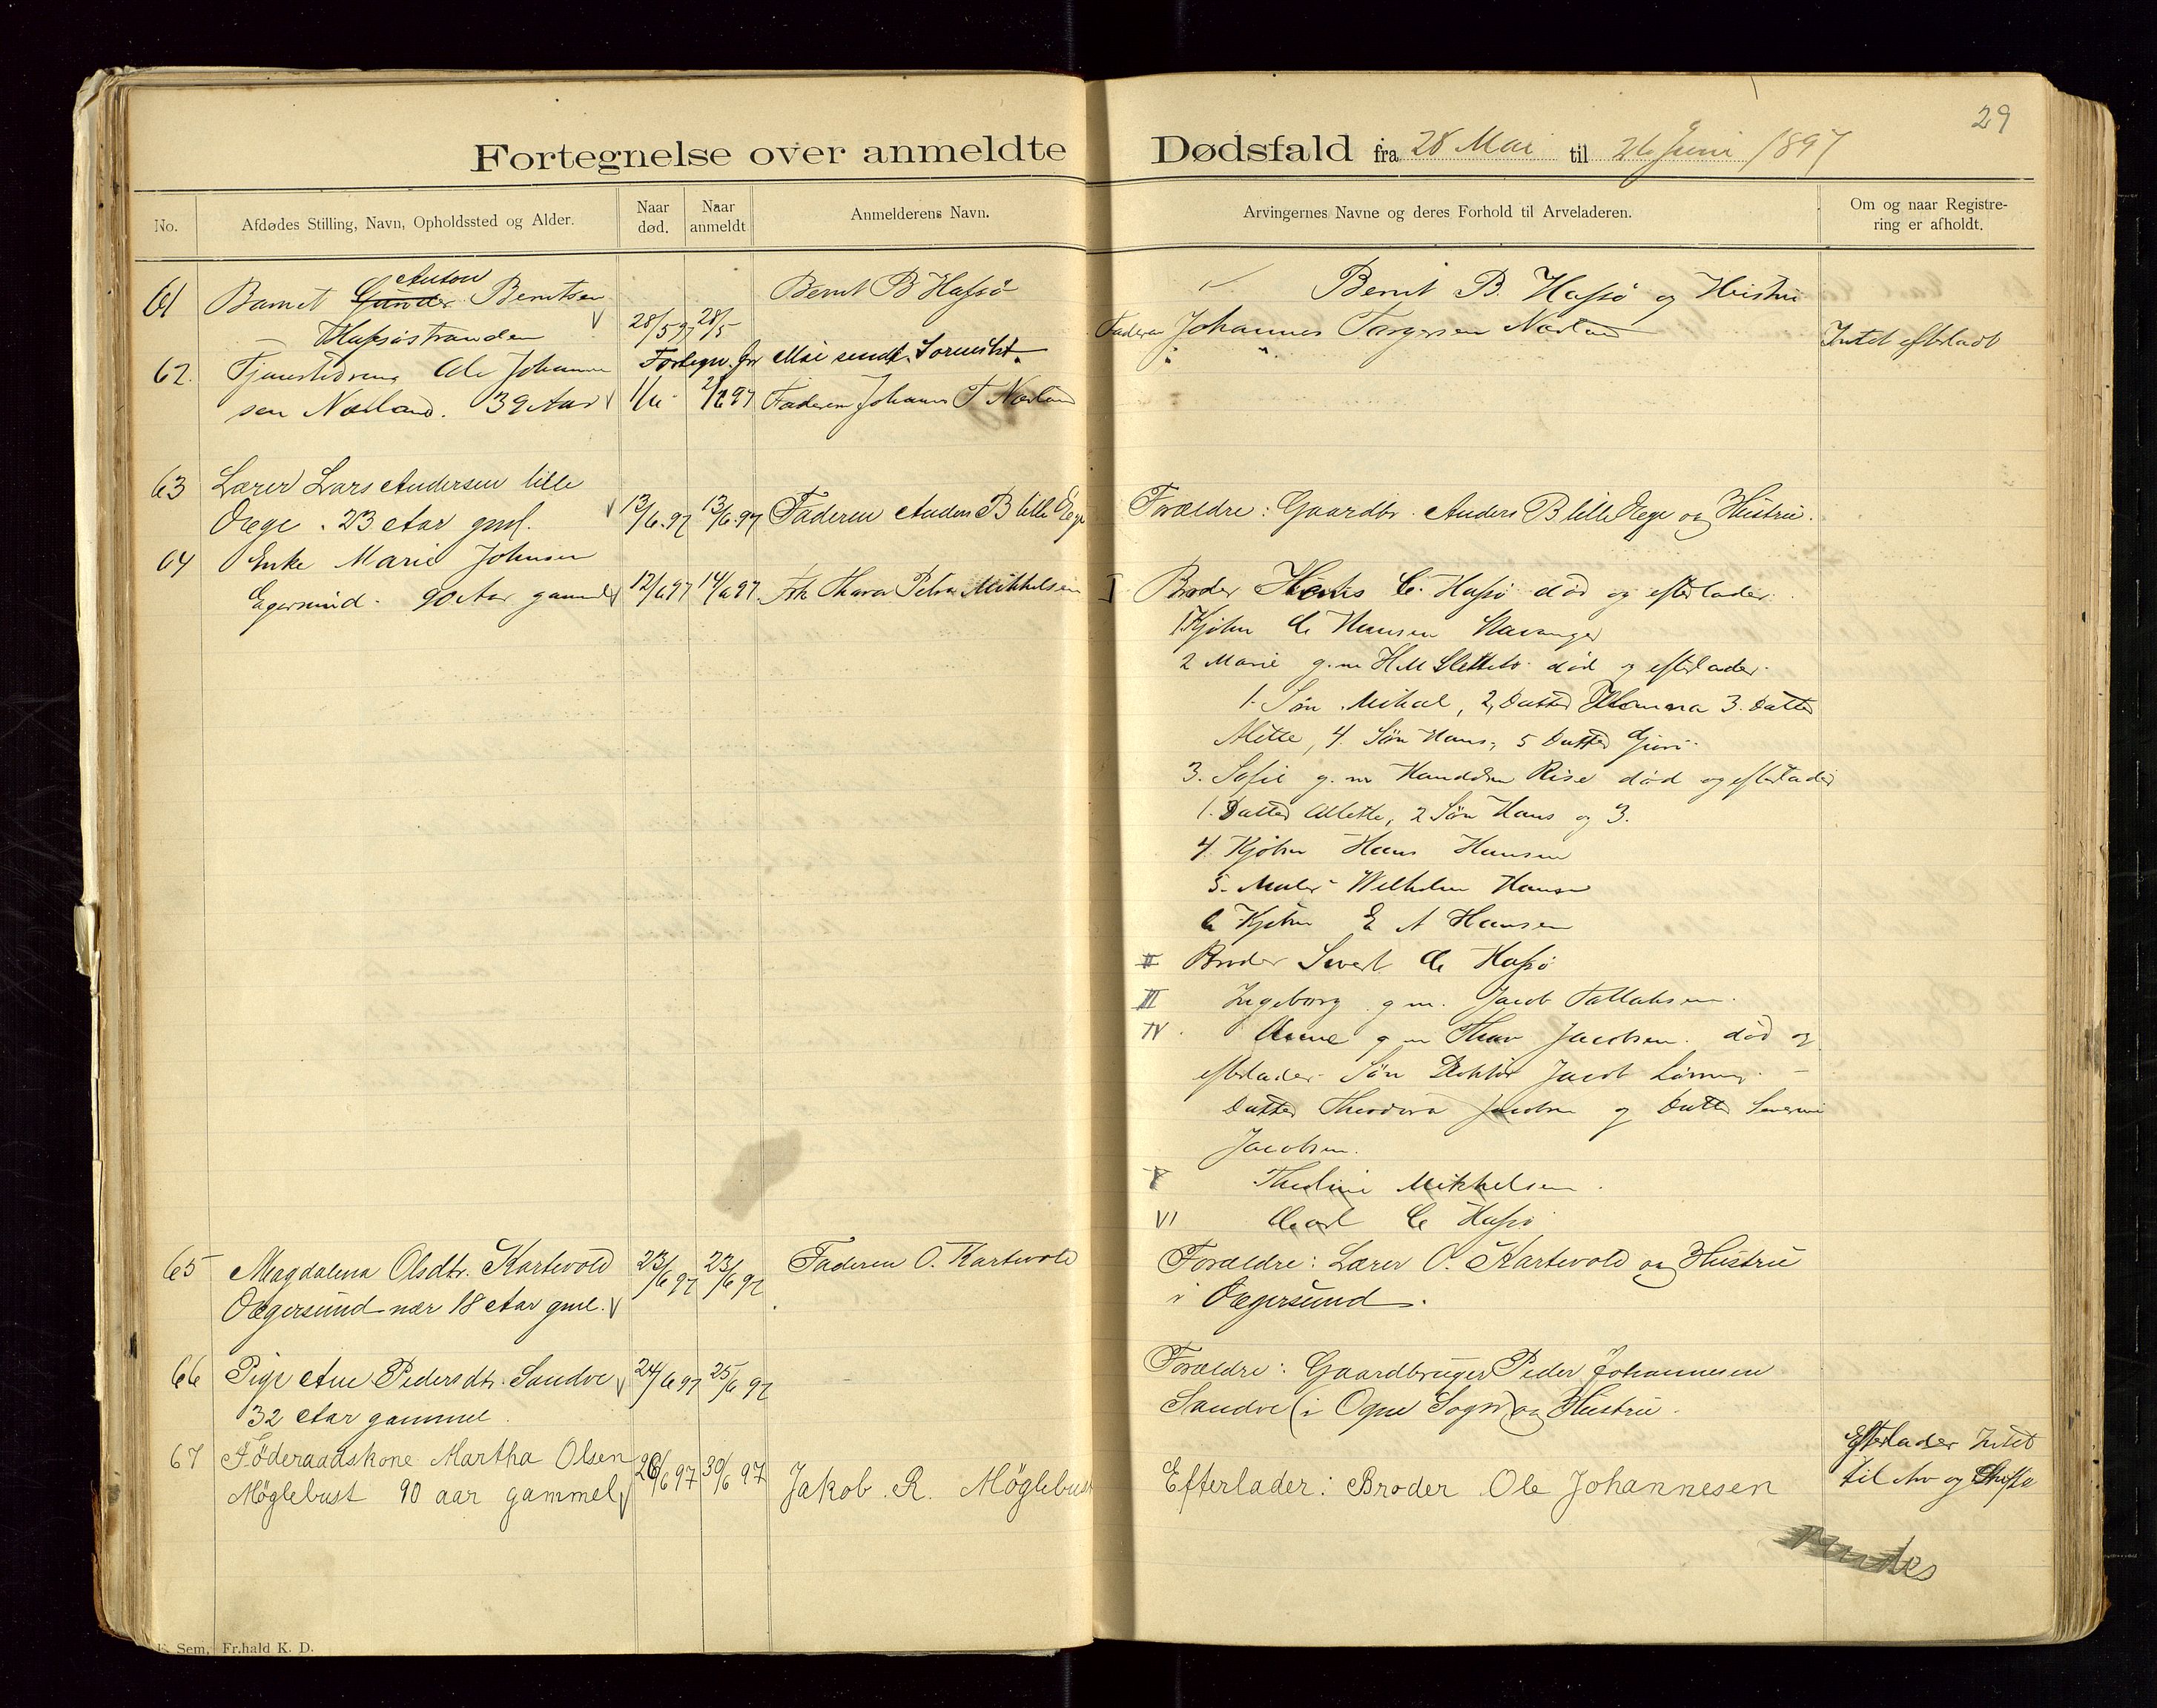 29
Fortegnelse over anmeldte Dødsfald fra 28 Mai til 26 Juni 1897
No.
Afdødes Stilling, Navn, Opholdssted og Alder.
Naar død.
Naar anmeldt
Anmelderens Navn.
Arvingernes Navne og deres Forhold til Arveladeren.
Om og naar Registre-
ring er afholdt.
61 Barnet Gunder Anton Berntsen
Hafsøstranden 28/5 97 28/5
Bernt B Hafsø
Bernt B. Hafsø og Hustru
Fortegn. for Mai sendt Sorenskr.
62. Tjenestedreng Ole Johanne
sen Nærland. 39 Aar 1/6 2/6 97 Faderen Johannes T Nærland
Faderen Johannes Torgersen Nærland
Intet efterladt
63 Lærer Lars Andersen lille
Æge. 23 Aar gml. 13/6.97 13/6.97 Faderen Anders B lille Æge
Forældre: Gaardbr. Anders B lille Æge og Hustru.
64 Enke Marie Johnsen
Egersund. 90 Aar gammel 12/6 97 14/6 97. Frk Thava Petra Mikkelsen
I Broder Hans C. Hafsø død og efterlader.
1 Kjøbm C. Hansen Stavanger
2 Marie g.m H M Slettebø død og efterlader.
1. Søn Mikal, 2, Datter Hanna 3. Datter
Mette, 4. Søn Hans, 5 Datter Guri.
3. Sofie g. m Rise død og efterlader
1. Datter Mette, 2 Søn Hans og 3.
4. Kjøbm Hans Hansen
5. Maler Wilhelm Hansen
6 Kjøbm E A Hansen
II Broder Sivert C. Hafsø
III Ingeborg g m. Jacob Tollaksen.
IV. Anne g m Thor Jacobsen. død og
efterlader Søn Doktor Jacob
Datter Theodora Jacobsen og Datter Severine
Jacobsen.
V Thedine Mikkelsen.
VI Carl C Hafsø
65 Magdalena Olsdtr. Kartevold
Ægersund nær 18 Aar gml. 23/6 97 23/6 97 Faderen O. Kartevold
Forældre: Lærer O. Kartevold og Hustru
i Ægersund.
66 Pige Ane Pedersdtr. Sandve 24/6 97 25/6 97
32 Aar gammel.
Forældre: Gaardbruger Peder Johannesen
Sandve (i Ogne Sogn) og Hustru.
67 Föderaadskone Martha Olsen
Möglebust 90 aar gammel 26/6 97 30/6 97 Jakob R. Möglebust
Efterlader: Broder Ole Johannesen
Efterlader Intet
til Arv og Skifte
Sem, Fr.hald K. D.